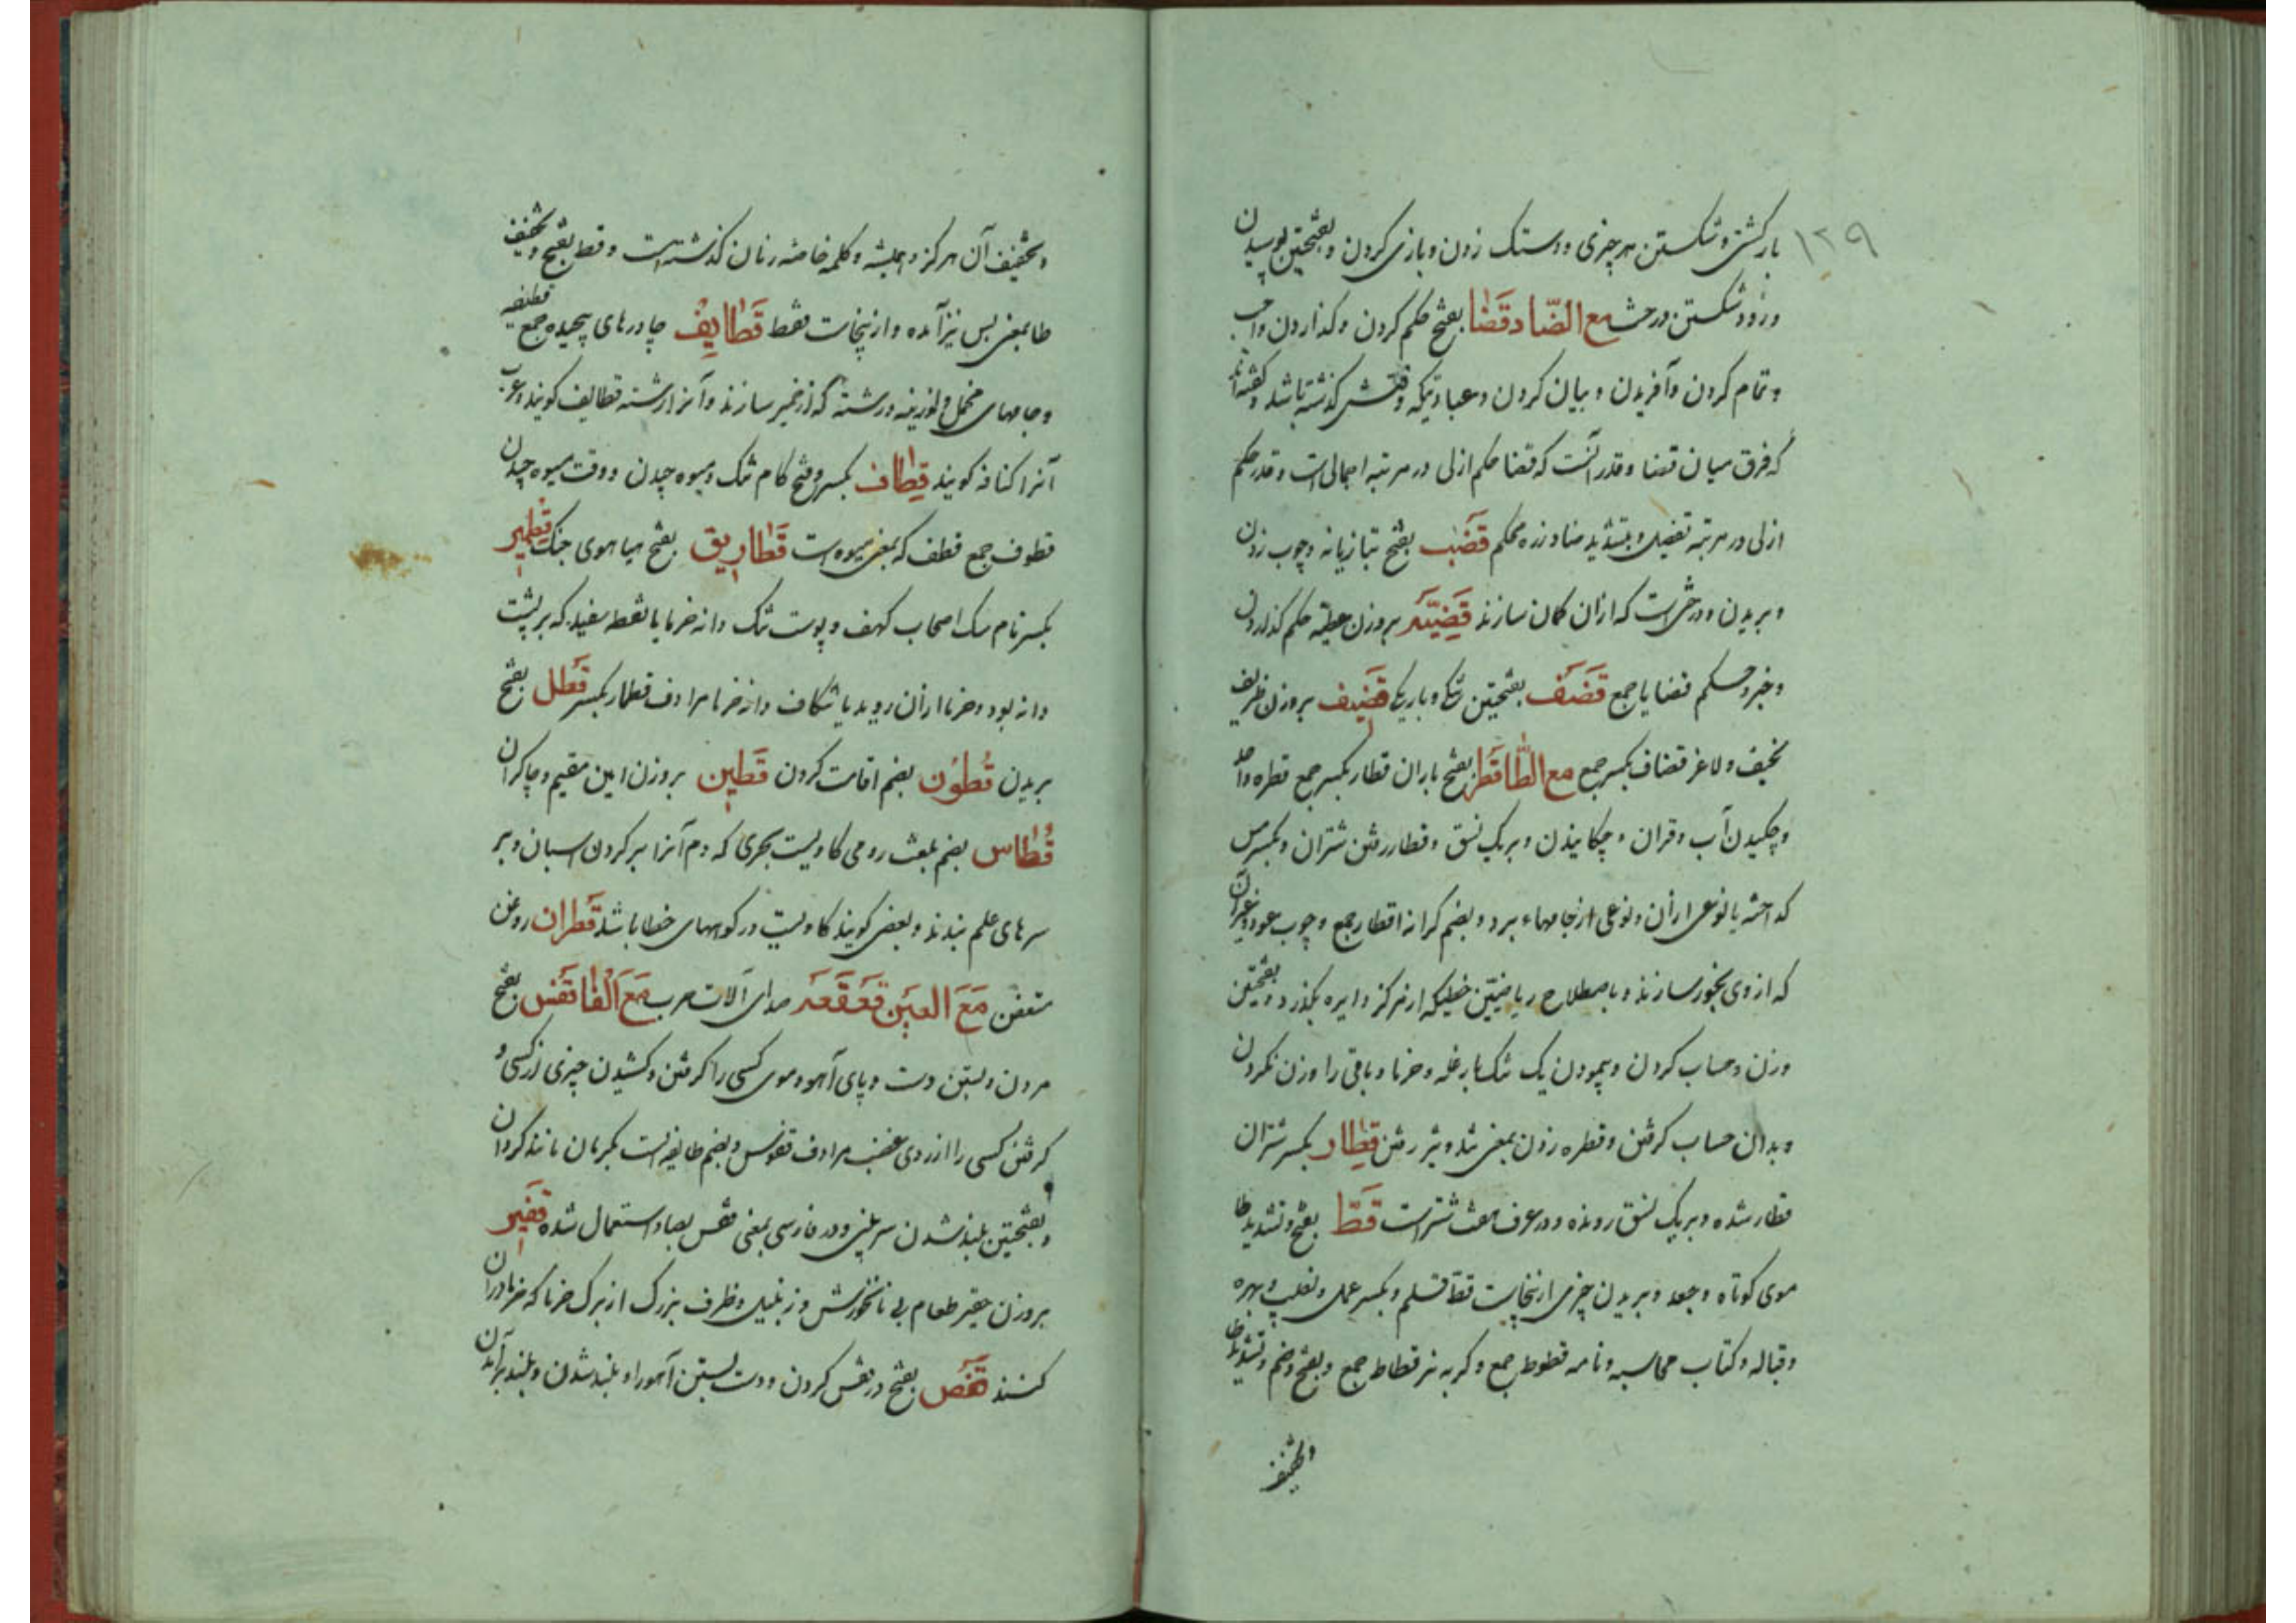 ۱۲۹
بازگشتن و شکستن هر چیزی و دستک زدن و بازی کردن و بفتحتین پوسیدن
و زود شکستن درخت مع الضاد قضا بفتح حکم کردن و گذاردن واجب
و تمام کردن و آفریدن و بیان کردن و عبادتیکه وقتش گذشته باشد و گفته‌اند
که فرق میان قضا و قدر آنست که قضا حکم ازلی در مرتبه اجمالی است و قدر حکم
ازلی در مرتبه تفصیل و بتشدید ضاد زره محکم قضب بفتح بتازیانه و چوب زدن
و بریدن و درختی است که ازان کمان سازند قضیّه بروزن عطیّه حکم گذاردن
و خبر و حکم قضایا جمع قضف بفتحتین تنکی و باریکی قضیف بروزن ظریف
نحیف و لاغر قضاف بکسر جمع مع الطّا قطر بفتح باران قطار بکسر جمع قطره واحد
و چکیدن آب و قران و چکانیدن و بر یک نسق و قطار رفتن شتران و بکسر مس
گداخته یا نوعی ازان و نوعی از جامهاء برد و بضم کرانه اقطار جمع و چوب عود و غیر آن
که از وی بخور سازند و باصطلاح ریاضیین خطیکه از مرکز دایره بگذرد و بفتحتین
وزن و حساب کردن و پیمودن یک تنگ بار غله و خرما و باقی را وزن نکردن
و بدان حساب گرفتن و قطره زدن بمعنی تند و تیز رفتن قطار بکسر شتران
قطار شده و بر یک نسق رونده و در عرف هفت شتر است قطّ بفتح و تشدید طا
موی کوتاه و جعد و بریدن چیزی ازینجاست قطّ قلم و بکسر عمل و نصیب و بهره
و قباله و کتاب محاسبه و نامه قطوط جمع و گربه نر قطاط جمع و بفتح و ضم و تشدید طا
و تخفیف
و تخفیف آن هرگز و همیشه و کلمه خاصه زنان گذشته است و قط بفتح و تخفیف
طا بمعنی بس نیز آمده و ازینجاست فقط قطایف چادرهای پیچیده جمع قطیفه
و جامهای مخمل و لوزینه و رشته که از خمیر سازند و آنرا رشته قطایف گویند و عرب
آنرا کنافه گویند قطاف بکسر و فتح کام تنگ و میوه چیدن و وقت میوه چیدن
قطوف جمع قطف که بمعنی میوه است قطاریق بفتح هیاهوی جنگ قطمیر
بکسر نام سگ اصحاب کهف و پوست تنک دانه خرما یا نقطه سفید که بر پشت
دانه بود و خرما ازان روید یا شکاف دانه خرما مرادف قطمار بکسر قطل بفتح
بریدن قطون بضم اقامت کردن قطین بروزن امین مقیم و چاکران
قطاس بضم بلغت رومی گاویست بحری که دم آنرا بر گردن اسبان و بر
سرهای علم بندند و بعضی گویند گاویست در کوههای خطا باشد قطران روغن
متعفن مع العین قعقعه صدای آلات حرب مع الفا قفس بفتح
مردن و بستن دست و پای آهو و موی کسی را گرفتن و کشیدن چیزی از کسی و
گرفتن کسی را از روی غضب مرادف قفوس و بضم طایفه‌ایست بکرمان مانند کردان
و بفتحتین بلند شدن سر بینی و در فارسی بمعنی قفص بصاد استعمال شده قفیر
بروزن حقیر طعام بی نانخورش و زنبیل و ظرف بزرگ از برگ خرما که خرما دران
کنند قفص بفتح در قفس کردن و دست بستن آهو را و بلند شدن و بلند برآمدن